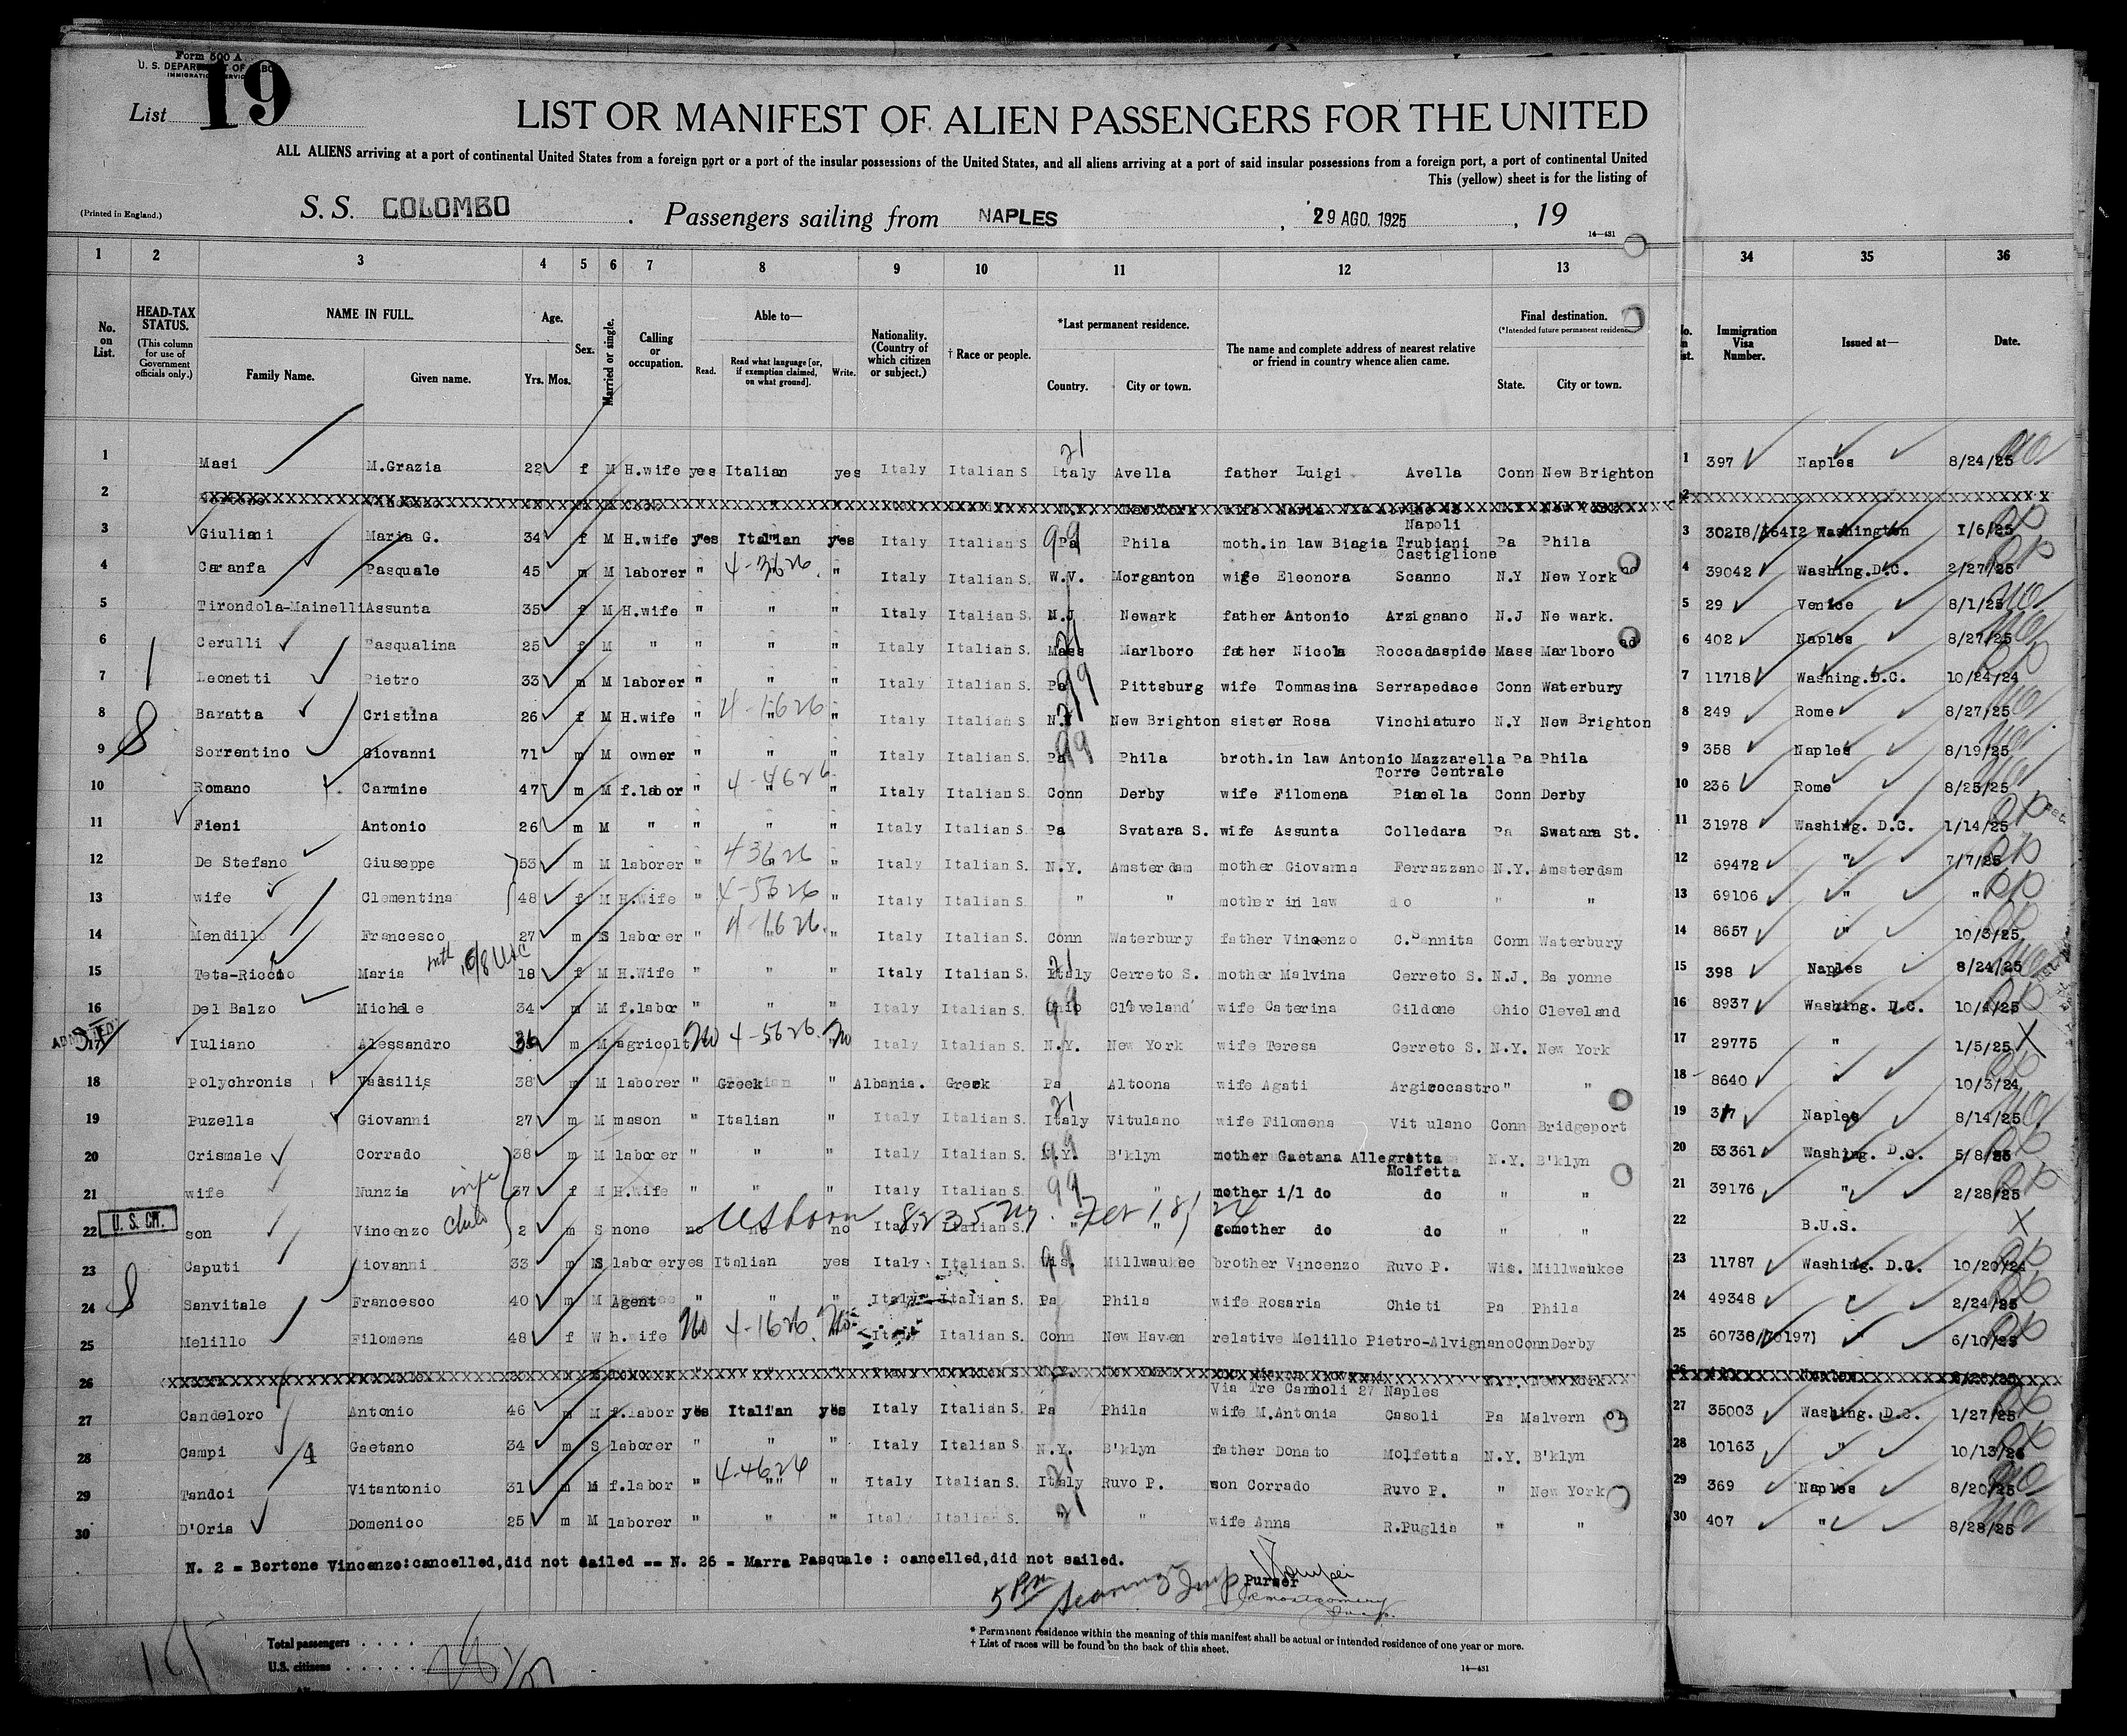 Form 500 A
U. S. DEPARTMENT OF LABOR
IMMIGRATION SERVICE
List 19
LIST OR MANIFEST OF ALIEN PASSENGERS FOR THE UNITED
ALL ALIENS arriving at a port of continental United States from a foreign port or a port of the insular possessions of the United States, and all aliens arriving at a port of said insular possessions from a foreign port, a port of continental United
This (yellow) sheet is for the listing of
(Printed in England.)
S. S. COLOMBO . Passengers sailing from NAPLES , 29 AGO. 1925 , 19
14—431
1 2 3 4 5 6 7 8 9 10 11 12 13 34 35 36
No. on List. HEAD-TAX STATUS. (This column for use of Government officials only.) NAME IN FULL. Family Name. Given name. Age. Yrs. Mos. Sex. Married or single. Calling or occupation. Able to— Read. Read what language [or, if exemption claimed, on what ground]. Write. Nationality. (Country of which citizen or subject.) † Race or people. *Last permanent residence. Country. City or town. The name and complete address of nearest relative or friend in country whence alien came. Final destination. (*Intended future permanent residence.) State. City or town. Immigration Visa Number. Issued at— Date.
1 Masi M.Grazia 22 f M H.wife yes Italian yes Italy Italian S 21 Italy Avella father Luigi Avella Conn New Brighton 1 397 Naples 8/24/25
2
3 Giuliani Maria G. 34 f M H.wife yes Italian yes Italy Italian S 99 Pa Phila moth.in law Biagia Trubiani Napoli Castiglione Pa Phila 3 30218/ Washington 1/6/25
4 Caranfa Pasquale 45 m M laborer " " " Italy Italian S. W.V. Morganton wife Eleonora Scanno N.Y New York 4 39042 Washing.D.C. 2/27/25
5 Tirondola-Mainelli Assunta 35 f M H.wife " " " Italy Italian S. N.J Newark father Antonio Arzignano N.J Ne wark. 5 29 Venice 8/1/25
6 Cerulli Pasqualina 25 f M " " " " Italy Italian S. 21 Mass Marlboro father Nicola Roccadaspide Mass Marlboro 6 402 Naples 8/27/25
7 Leonetti Pietro 33 m M laborer " " " Italy Italian S. Pa 99 Pittsburg wife Tommasina Serrapedace Conn Waterbury 7 11718 Washing.D.C. 10/24/24
8 Baratta Cristina 26 f M H.wife " 4-1626 " Italy Italian S. N.Y New Brighton sister Rosa Vinchiaturo N.Y New Brighton 8 249 Rome 8/27/25
9 Sorrentino Giovanni 71 m M owner " " " Italy Italian S. Pa 99 Phila broth.in law Antonio Mazzarella Pa Phila 9 358 Naples 8/19/25
Torre Centrale
10 Romano Carmine 47 m M f.labor " 4-4626 " Italy Italian S. Conn Derby wife Filomena Pianella Conn Derby 10 236 Rome 8/25/25
11 Fieni Antonio 26 m M " " " " Italy Italian S. Pa Svatara S. wife Assunta Colledara Pa Swatara St. 11 31978 Washing. D.C. 1/14/25
12 De Stefano Giuseppe 53 m M laborer " 43626 " Italy Italian S. N.Y. Amsterdam mother Giovanna Ferrazzano N.Y. Amsterdam 12 69472 " 7/7/25
13 wife Clementina 48 f M H.Wife " 4-5626 " Italy Italian S. " " mother in law do " " 13 69106 " "
14 Mendillo Francesco 27 m S laborer " 4-1626. Italy Italian S. Conn Waterbury father Vincenzo C.Sannita Conn Waterbury 14 8657 " 10/3/25
15 Teta-Riccio Maria 18 f M H.Wife " " " Italy Italian S. 21 Italy Cerreto S. mother Malvina Cerreto S. N.J. Ba yonne 15 398 Naples 8/24/25
16 Del Balzo Michele 34 m M f.labor " " " Italy Italian S. 99 Ohio Cleveland wife Caterina Gildone Ohio Cleveland 16 8937 Washing. D.C. 10/4/25
17 Iuliano Alessandro 36 m M agricolt No 4-5626. No Italy Italian S. N.Y. New York wife Teresa Cerreto S. N.Y. New York 17 29775 " 1/5/25 X
18 Polychronis Vassilis 38 m M laborer " Greek " Albania. Greek Pa Altoona wife Agati Argirocastro " " 18 8640 10/3/24
19 Puzella Giovanni 27 m M mason " Italian " Italy Italian S. 21 Italy Vitulano wife Filomena Vit ulano Conn Bridgeport 19 317 Naples 8/14/25
20 Crismale Corrado 38 m M laborer " " " Italy Italian S. 99 N.Y. B'klyn mother Gaetana Allegretta Molfetta N.Y. B'klyn 20 53361 Washing. D.C. 5/8/25
21 wife Nunzia wife 37 f M H.wife " " " Italy Italian S. 99 " mother i/l do do " " 21 39176 " 2/28/25
U. S. CIT. 22 son Vincenzo child 2 m S none no no no Italy Italian S. " " gemother do do " " 22 B.U.S. X
23 Caputi Giovanni 33 m S laborer yes Italian yes Italy Italian S. 99 Wis. Millwaukee brother Vincenzo Ruvo P. Wis. Millwaukee 23 11787 Washing. D.C. 10/20/24
24 Sanvitale Francesco 40 m M Agent " " " Italy Italian S. Pa Phila wife Rosaria Chieti Pa Phila 24 49348 " 2/24/25
25 Melillo Filomena 48 f W h.wife No 4-1626. No Italy Italian S. Conn New Haven relative Melillo Pietro-Alvignano Conn Derby 25 60738/(70197) " 6/10/25
26
Via Tre Cannoli 27 Naples
27 Candeloro Antonio 46 m M f.labor yes Italian yes Italy Italian S. Pa Phila wife M.Antonia Casoli Pa Malvern 27 35003 Washing. D.C. 1/27/25
28 Campi Gaetano 34 m S laborer " " " Italy Italian S N.Y. B'klyn father Donato Molfetta N.Y. B'klyn 28 10163 " 10/13/25
29 Tandoi Vitantonio 31 m M f.labor " 4-4626 " Italy Italian S. 21 Italy Ruvo P. son Corrado Ruvo P. " New York 29 369 Naples 8/20/25
30 D'Oria Domenico 25 m M laborer " " " Italy Italian S. " 21 " wife Anna R.Puglia " " 30 407 " 8/28/25
N. 2 = Bortone Vincenzo:cancelled,did not sailed == N. 26 = Marra Pasquale : cancelled,did not sailed.
5 PM Purser
Total passengers . . . .
U.S. citizens . . . . . .
* Permanent residence within the meaning of this manifest shall be actual or intended residence of one year or more.
† List of races will be found on the back of this sheet.
14—431